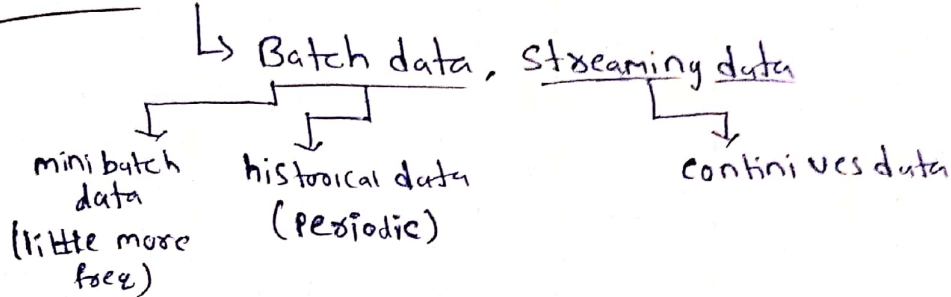 ↳ Batch data, Streaming data
mini batch
data
(little more
freq)
historical data
(periodic)
continives data